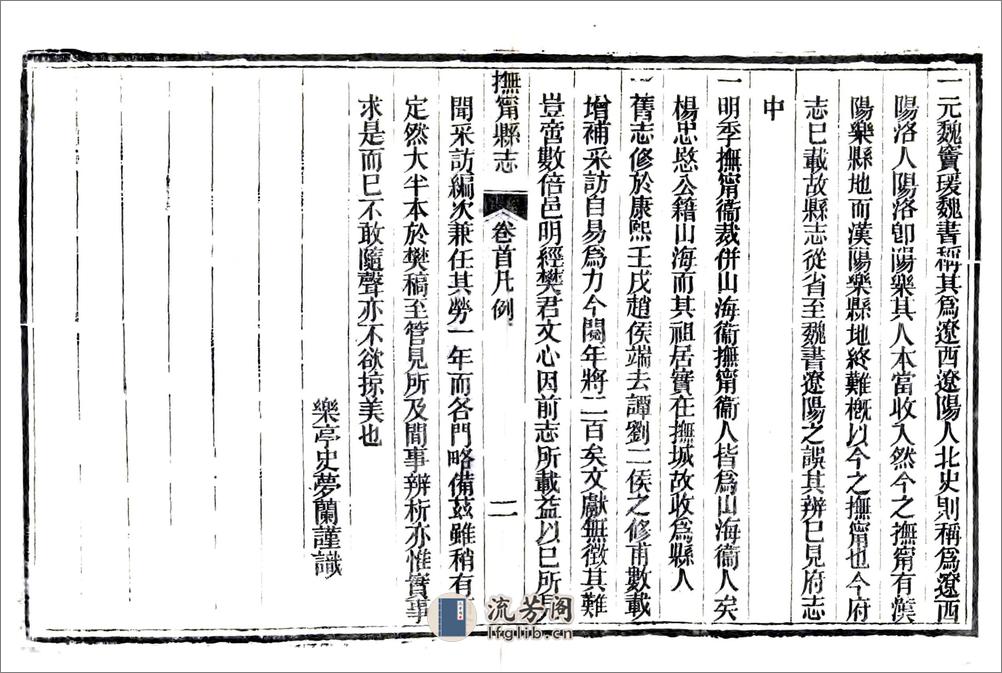 一元魏竇瑗魏書稱其爲遼西遼陽人北史則稱爲遼西
陽洛人陽洛卽陽樂其人本當收入然今之撫甯有漢
陽樂縣地而漢陽樂縣地終難槪以今之撫甯也今府
志已載故縣志從省至魏書遼陽之誤其辨已見府志
中
一明季撫甯衞裁併山海衞撫甯衞人皆爲山海衞人矣
楊忠愍公籍山海而其祖居實在撫城故收爲縣人
一舊志修於康熙壬戌趙侯端去譚劉二侯之修甫數載
增補采訪自易爲力今閱年將二百矣文獻無徵其難
豈啻數倍邑明經樊君文心因前志所載益以已所見
聞采訪編次兼任其勞一年而各門略備茲雖稍有
定然大半本於樊稿至管見所及間事辨析亦惟實事
求是而已不敢隨聲亦不欲掠美也
樂亭史夢蘭謹識
撫甯縣志
卷首凡例
二
流芳阁
lfglib.cn